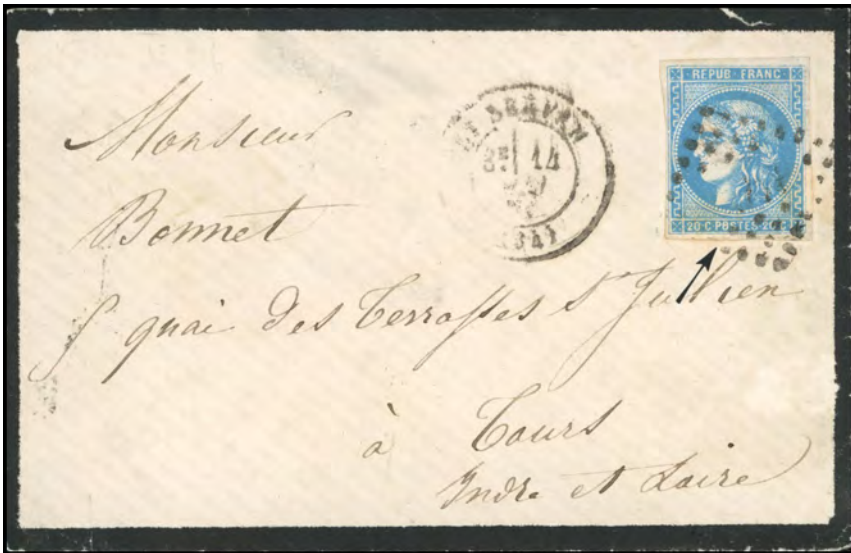 REPUB FRANC
14
(34)
20 C POSTES 20 C
Monsieur
Bonnet
quai des Terrasses St Jullien
à Tours
Indre et Loire